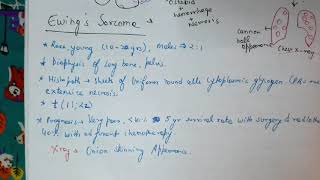 Osteoid
hemorrhage
+
necrosis
Cannon
ball
appearance
Chest X-ray
Ewing's Sarcoma
* Rare young (10-20 yrs), Males → 2:1
* Diaphysis of long bone, pelvis.
* Histopath → Sheets of Uniform round cells cytoplasmic glycogen
extensive necrosis.
* t(11;22)
* Prognosis → Very poor, 5 yr survival rate with surgery & radio
40% with adjuvant chemotherapy.
X-ray → Onion skinning Appearance.